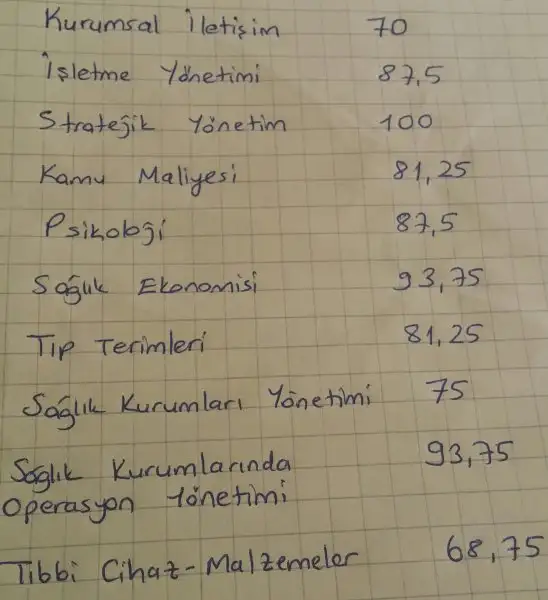 Kurumsal İletişim 70
İşletme Yönetimi 87,5
Stratejik Yönetim 100
Kamu Maliyesi 81,25
Psikoloji 87,5
Sağlık Ekonomisi 93,75
Tıp Terimleri 81,25
Sağlık Kurumları Yönetimi 75
Sağlık Kurumlarında 93,75
Operasyon Yönetimi
Tıbbi Cihaz-Malzemeler 68,75